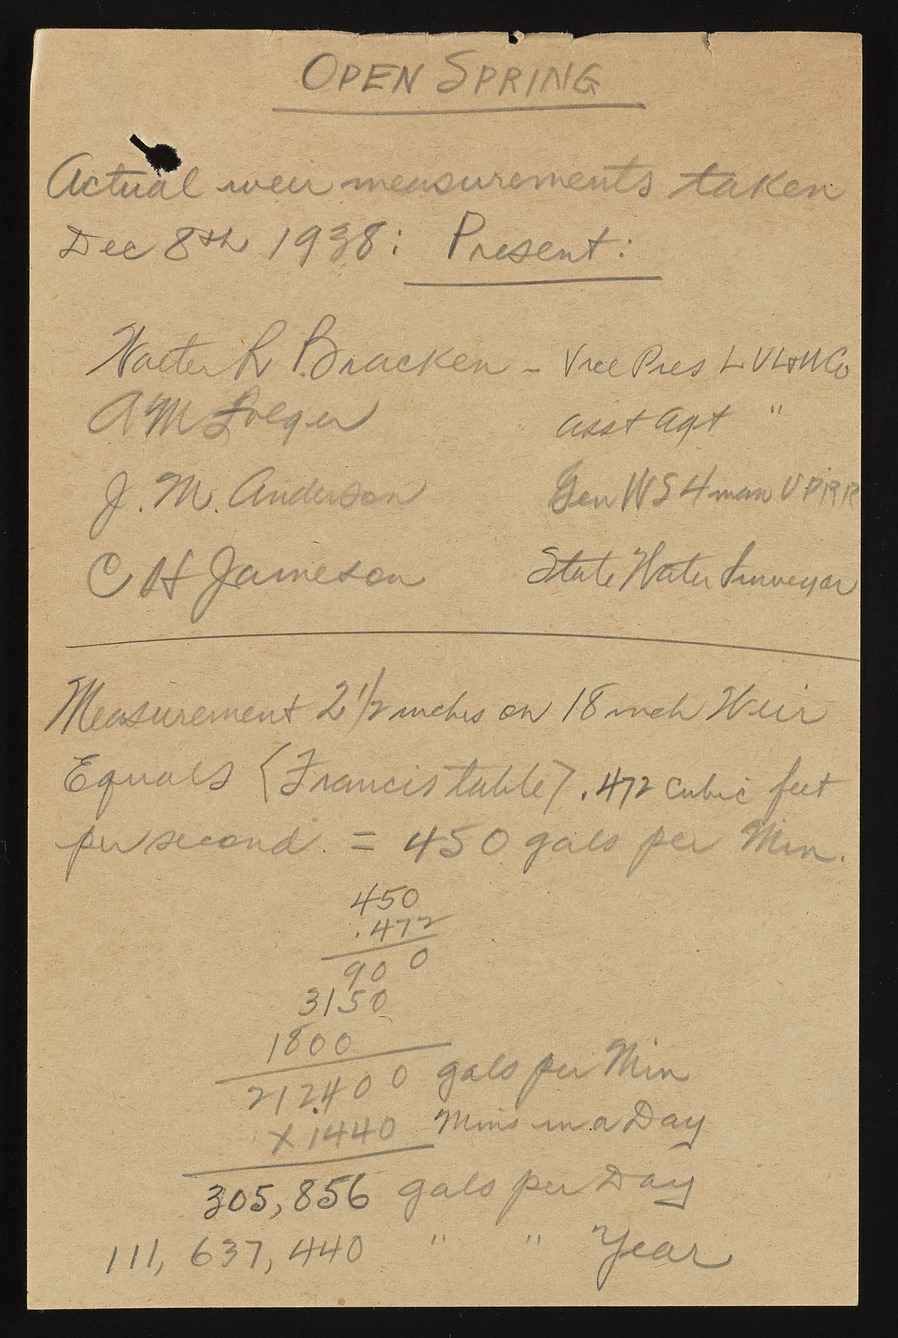 OPEN SPRING
Actual weir measurements taken
Dec 8th 1938: Present:
Walter R Bracken - Vice Pres LVL&W Co
A M Folger asst agt "
J. M. Anderson Gen W S 4man UPRR
C H Jameson State Water Surveyor
Measurement 2 1/2 inches on 18 inch Weir
Equals (Francis table) .472 cubic feet
per second. = 450 gals per Min.
450
.472
900
3150
1800
212.400 gals per Min
X 1440 Mins in a Day
305,856 gals per Day
111,637,440 " " Year